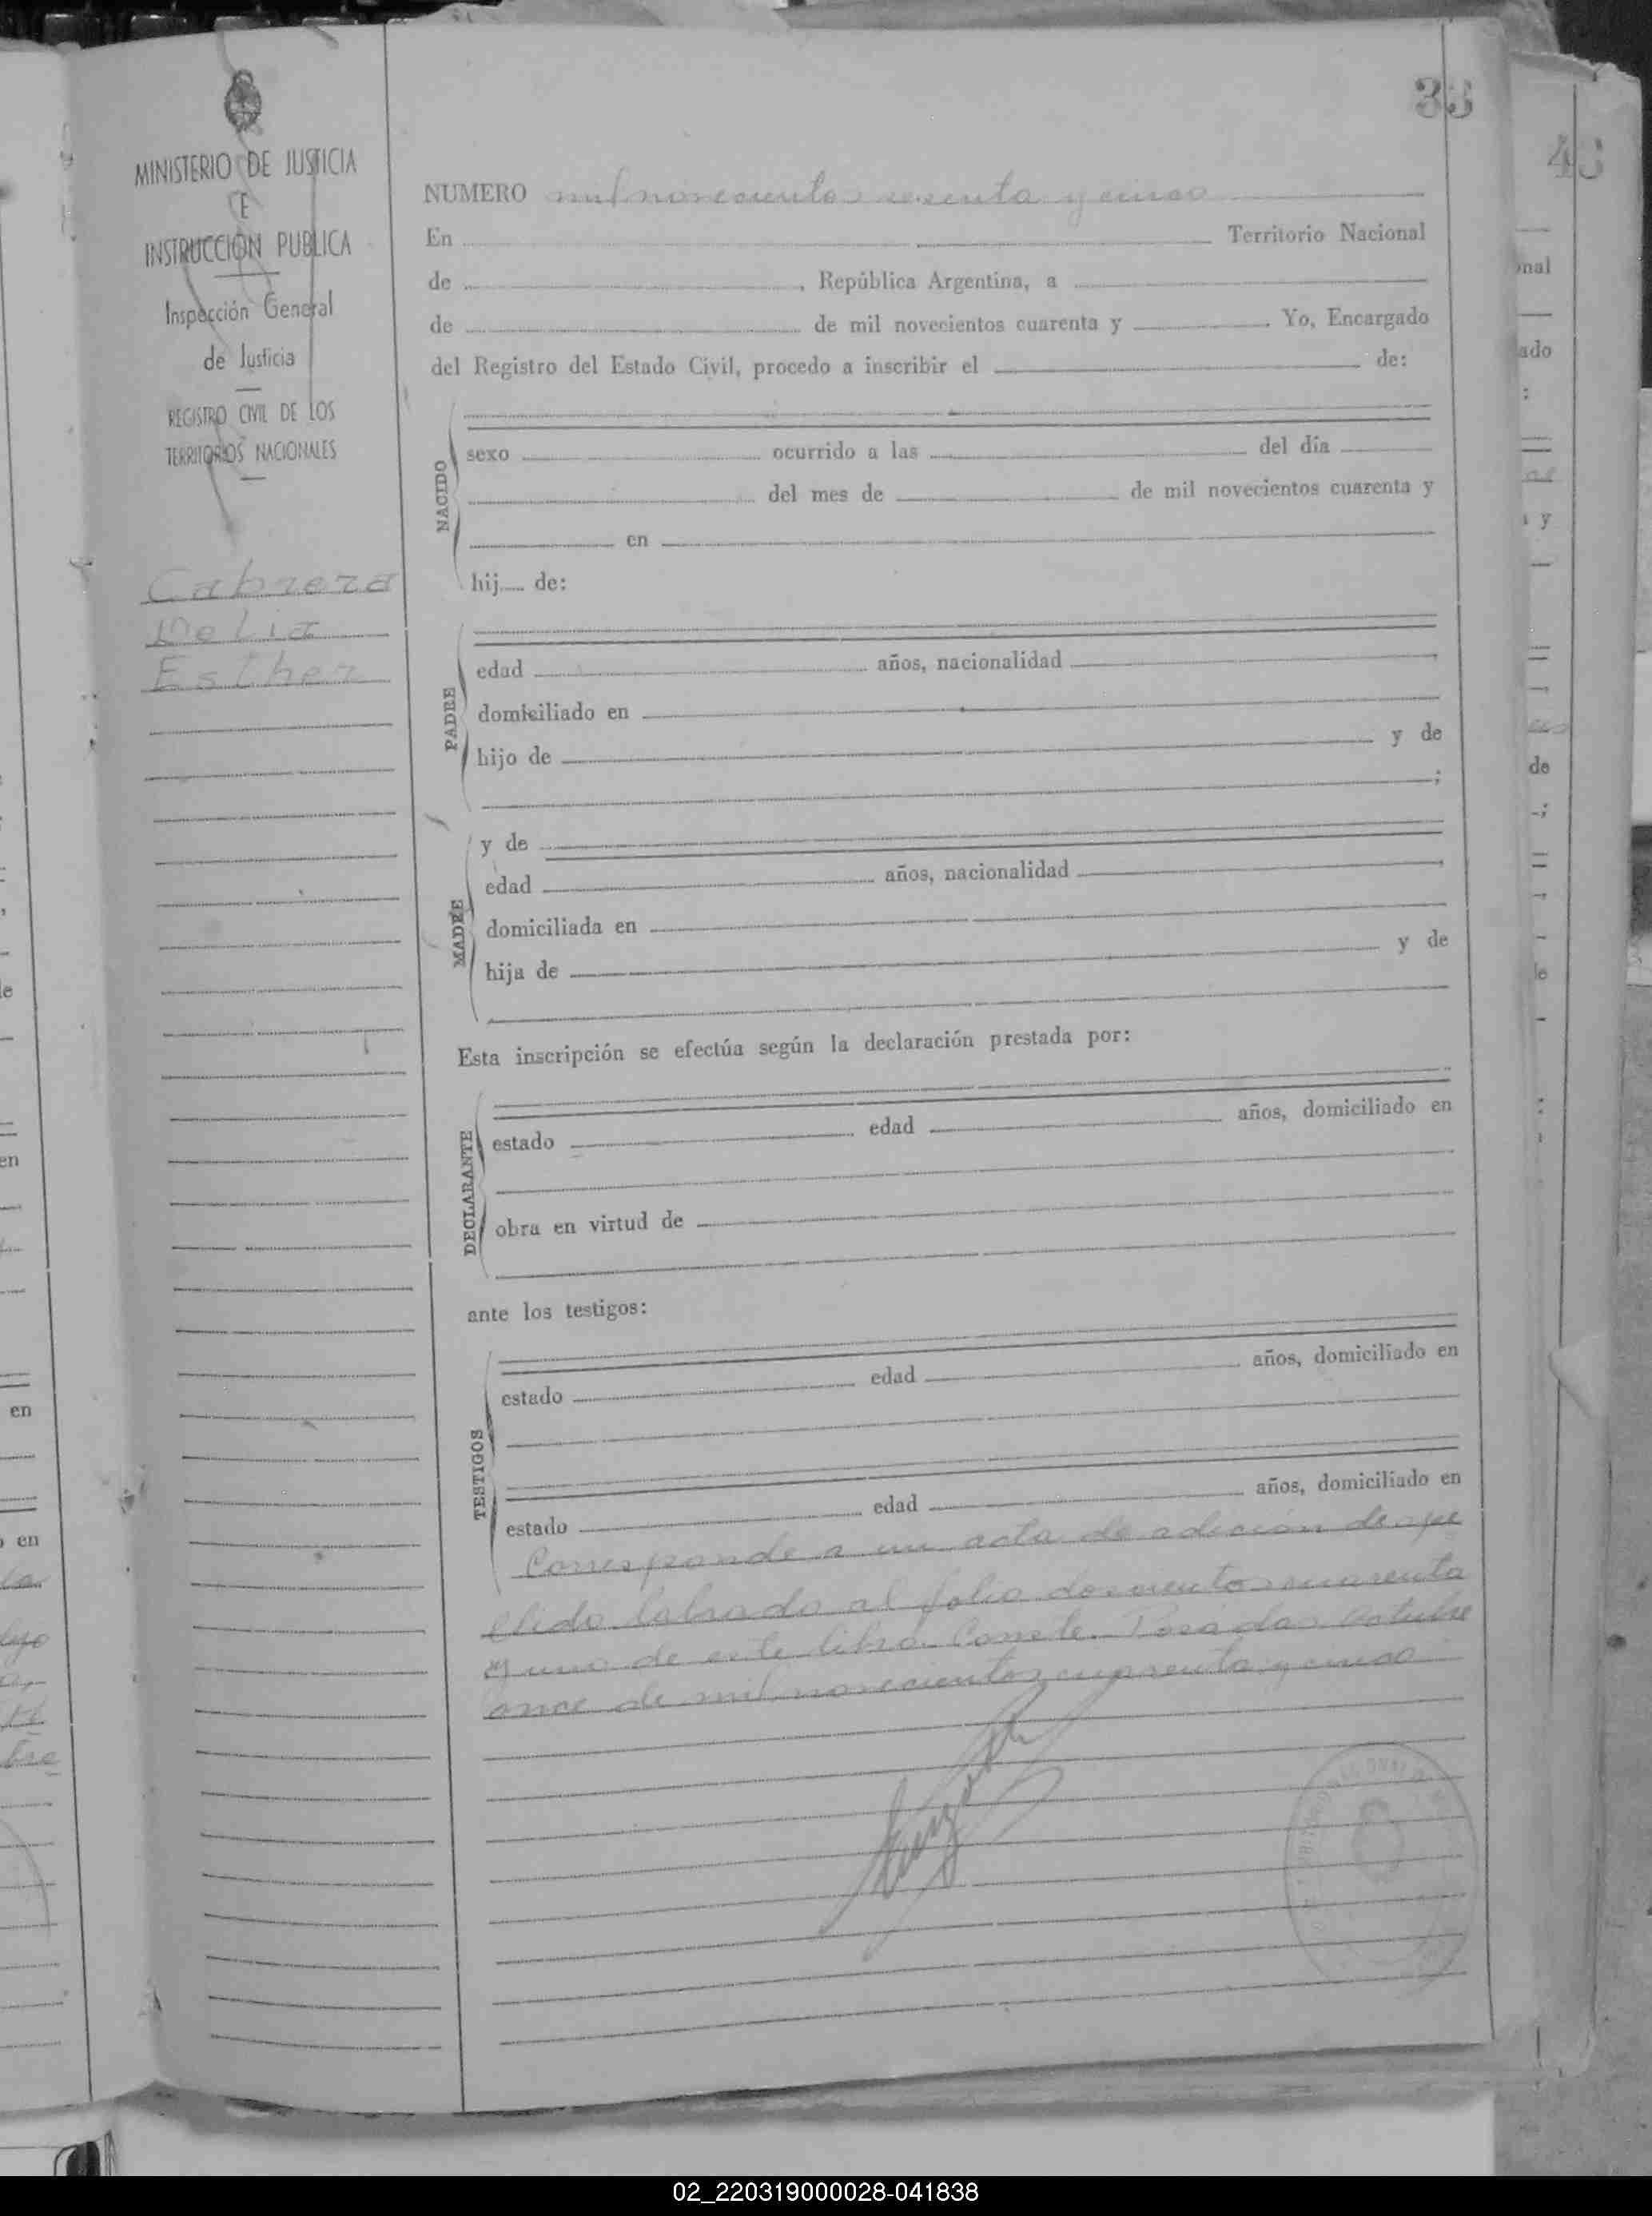 33
43
MINISTERIO DE JUSTICIA
E
INSTRUCCION PUBLICA
Inspección General
de Justicia
REGISTRO CIVIL DE LOS
TERRITORIOS NACIONALES
Cabrera
Delia
Esther
NUMERO mil novecientos sesenta y cinco
En Territorio Nacional
de , República Argentina, a
de de mil novecientos cuarenta y . Yo, Encargado
del Registro del Estado Civil, procedo a inscribir el de:
NACIDO
sexo ocurrido a las del día
del mes de de mil novecientos cuarenta y
en
hij de:
PADRE
edad años, nacionalidad ,
domiciliado en
hijo de y de
;
MADRE
y de
edad años, nacionalidad ,
domiciliada en
hija de y de
Esta inscripción se efectúa según la declaración prestada por:
DECLARANTE
estado edad años, domiciliado en
obra en virtud de
ante los testigos:
TESTIGOS
estado edad años, domiciliado en
estado edad años, domiciliado en
Corresponde a un acta de adición de ape
llido labrada al folio doscientos cuarenta
y uno de este libro. Conste. Posadas Octubre
once de mil novecientos cuarenta y cinco
02_220319000028-041838